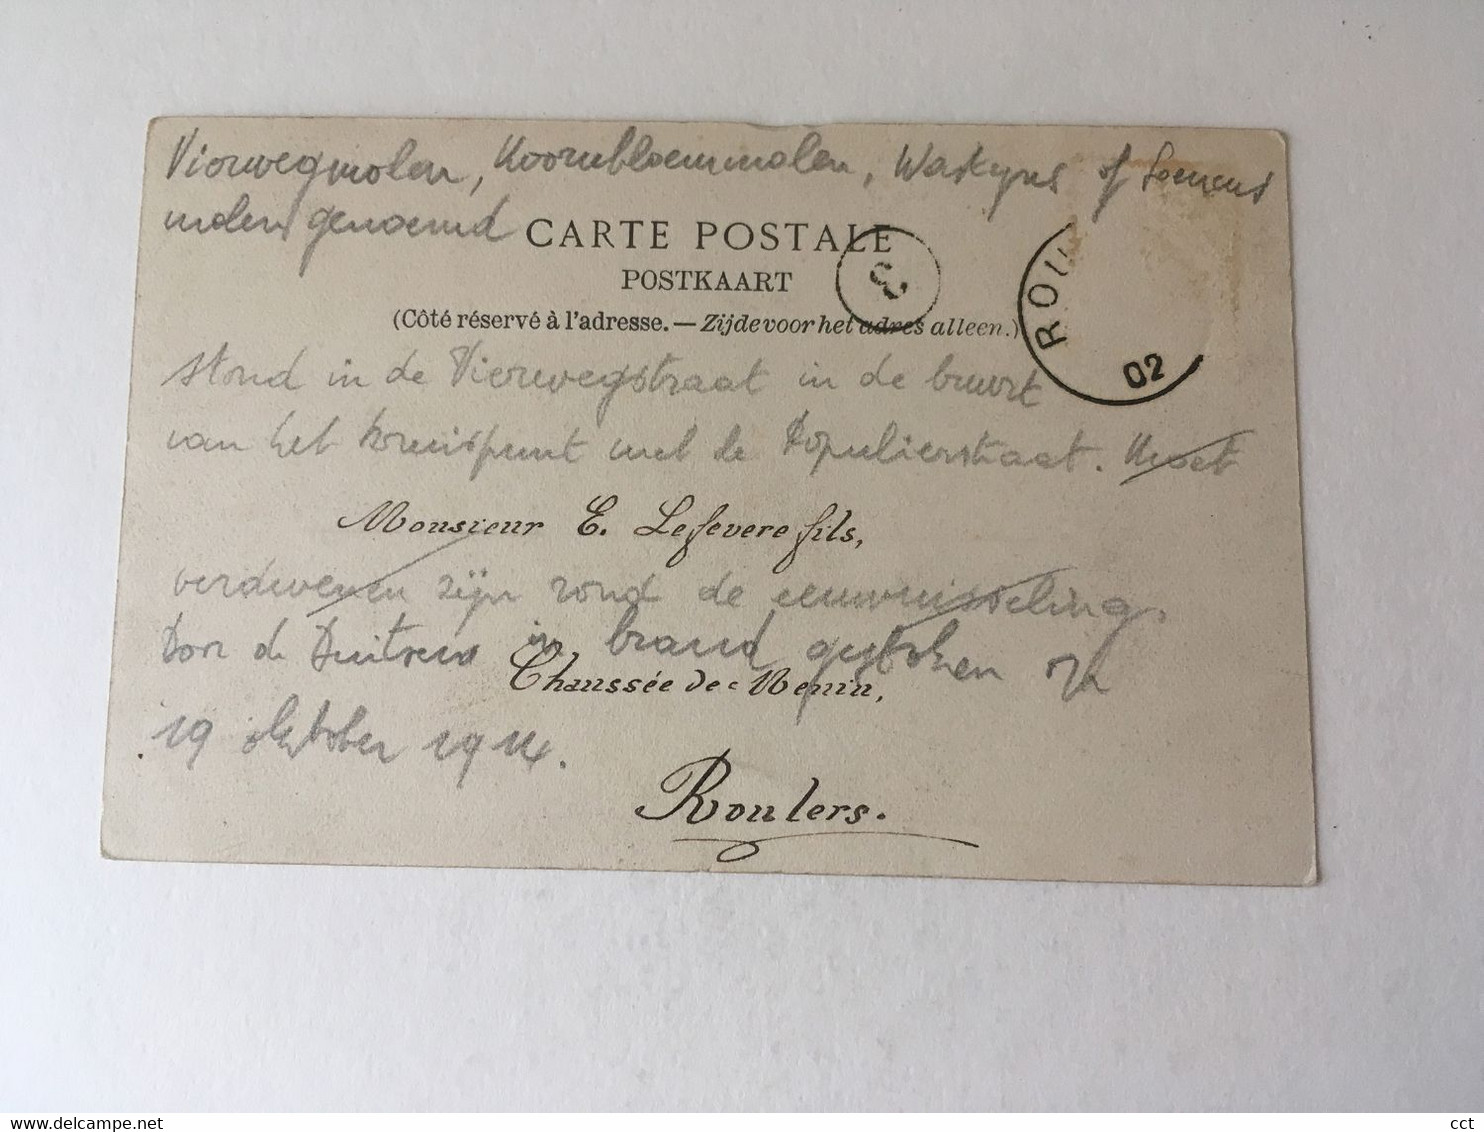 Vierwegmolen, Koornbloemmolen, Waskyns of Seurens
molen genoemd
CARTE POSTALE
POSTKAART
(Côté réservé à l'adresse. — Zijde voor het adres alleen.)
ROU
02
stond in de Vierwegstraat in de buurt
van het kruispunt met de Populierstraat. Moet
Monsieur E. Lefevere fils,
verdwenen zijn rond de eeuwwisseling.
Door de Duitsers in brand gestoken op
Chaussée de Menin,
19 oktober 1914.
Roulers.
www.delcampe.net
cct